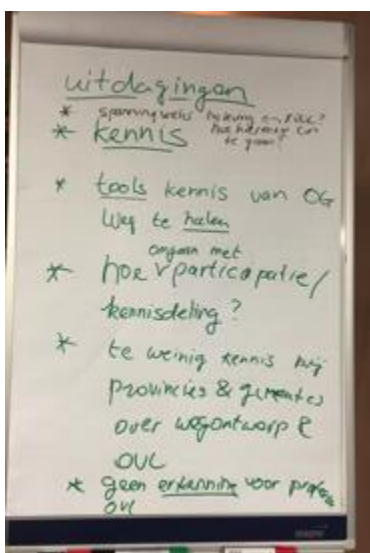 uitdagingen
* spanningsveld beleving en
* kennis hoe hiermee om
te gaan?
* tools kennis van OG
weg te halen
omgaan met
* hoe v participatie/
kennisdeling?
* te weinig kennis bij
provincies & gemeentes
over wegontwerp &
OVL
* geen erkenning voor
OVL